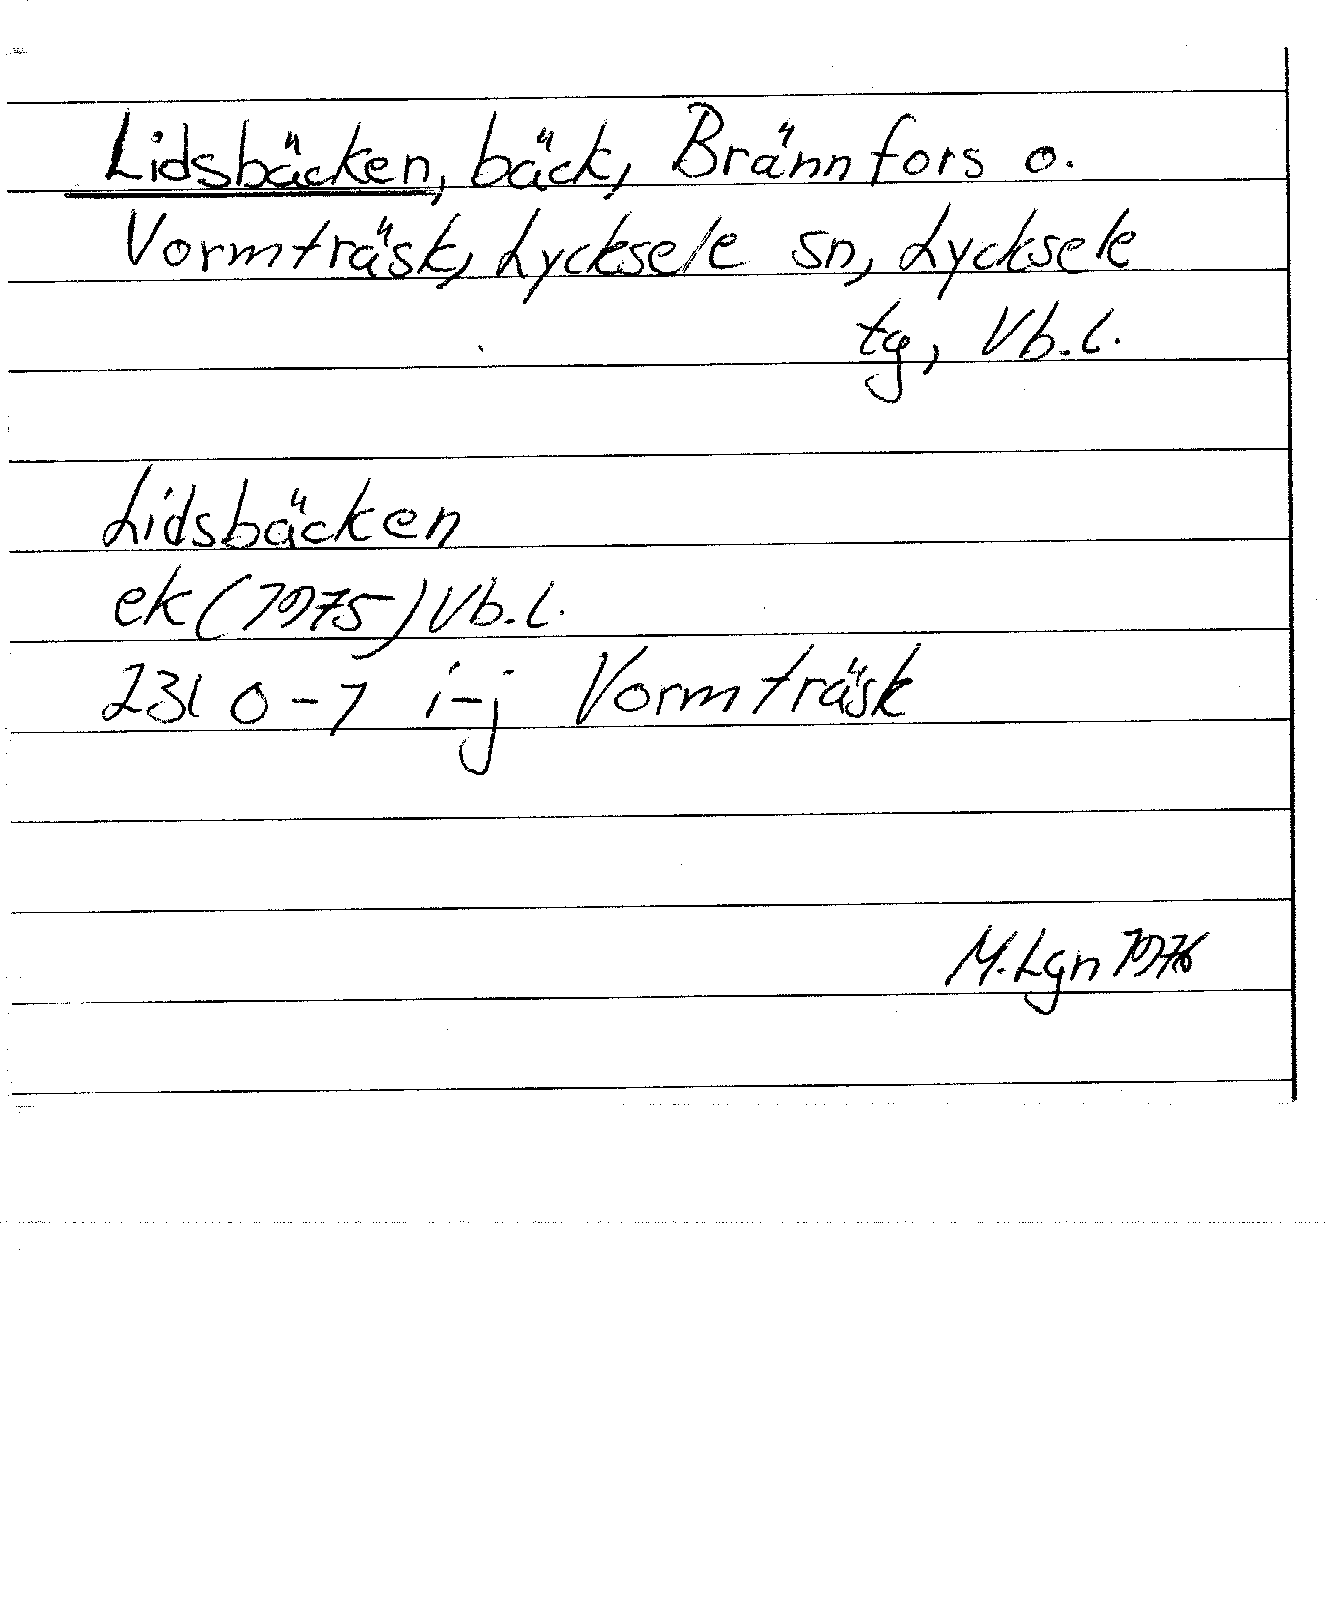 Lidsbäcken, bäck, Brännfors o.
Vormträsk, Lycksele sn, Lycksele
tg, Vb.l.
Lidsbäcken
ek (1975) Vb.l.
23I 0-1 i-j Vormträsk
M.Lgn 1976